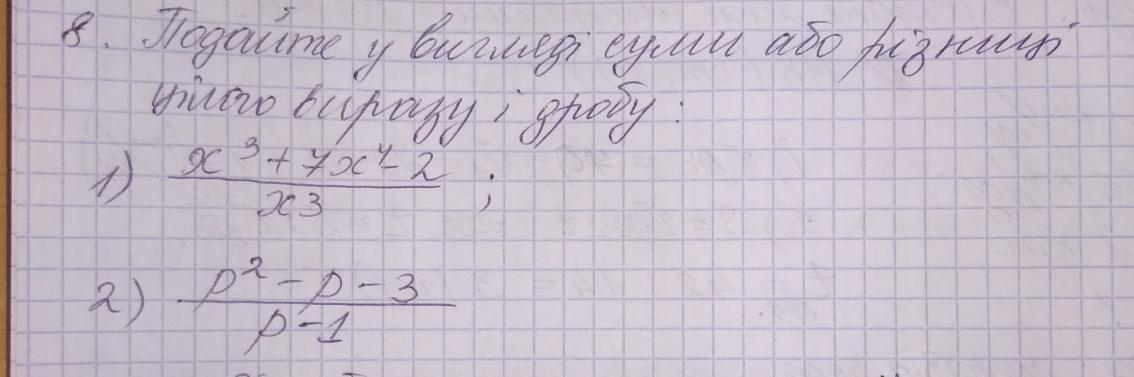 8. Подайте у вигляді суми або різниці
цілого виразу і дробу:
1) x³ + 7x⁴ - 2
x3 ;
2) p² - p - 3
p - 1